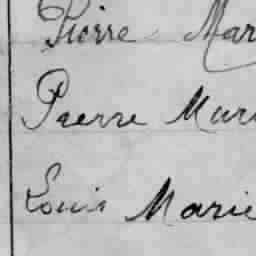 Pierre Mar
Pierre Mari
Louis Marie